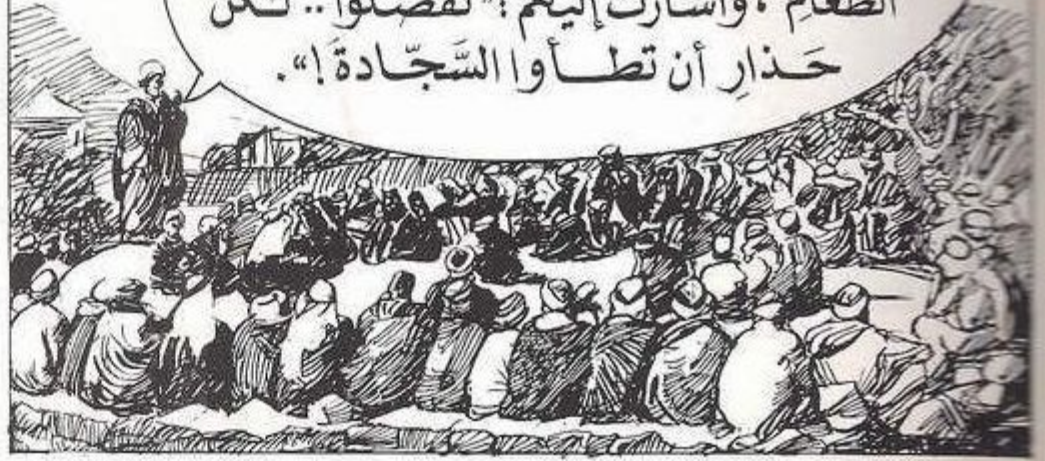 الطعام ، وأشارت إليهم : "تفضلوا .. لكن
حَـذارِ أن تطـأوا السَّجّـادةَ !".